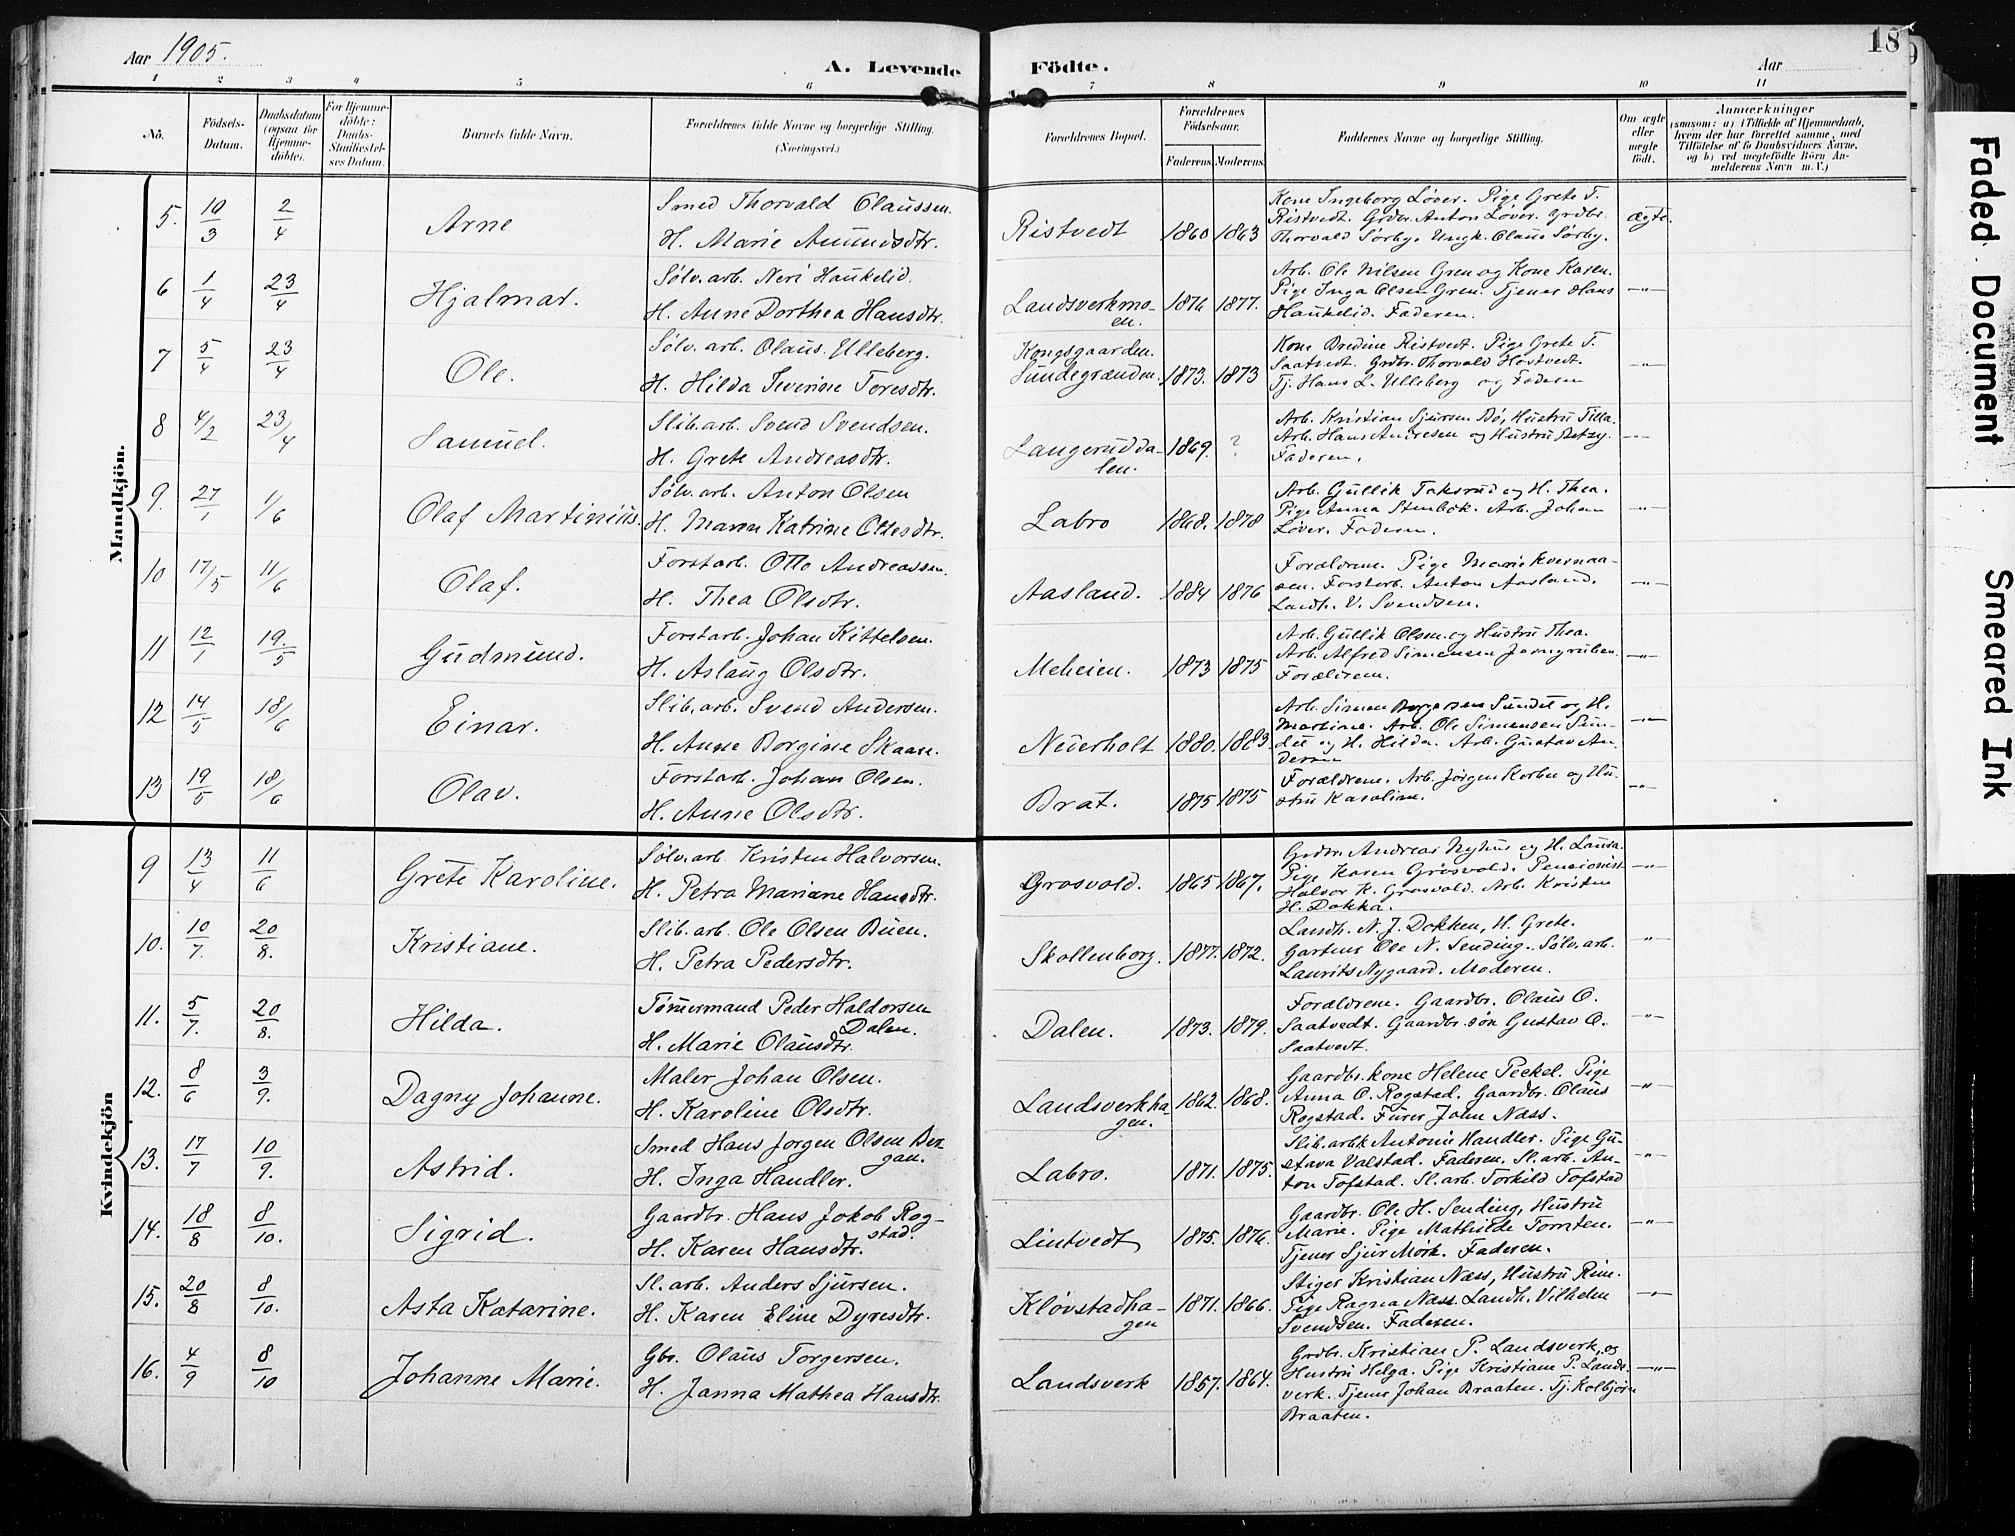 Aar 1905.
A. Levende Födte.
Aar
18
1 2 3 4 5 6 7 8 9 10 11
No.
Födsels-
Datum.
Daabsdatum
(ogsaa for
Hjemme-
döbte).
For Hjemme-
döbte:
Daabs-
Stadfæstel-
ses Datum.
Barnets fulde Navn.
Forældrenes fulde Navne og borgerlige Stilling.
(Næringsvei.)
Forældrenes Bopæl.
Forældrenes
Födselsaar.
Faderens. Moderens.
Faddernes Navne og borgerlige Stilling.
Om ægte
eller
uægte
födt.
Anmærkninger
(saasom: a) i Tilfælde af Hjemmedaab,
hvem der har forrettet samme, med
Tilföielse af to Daabsvidners Navne,
og b) ved uægtefödte Börn An-
melderens Navn m. V.)
Mandkjön.
5. 10/3 2/4 Arne
Smed Thorvald Claussen.
H. Marie Amundsdtr.
Ristvedt 1860 1863
Kone Ingeborg Løver. Pige Grete T.
Ristvedt. Grdbr. Anton Løver. Grdbr.
Thorvald Sørby. Ungk. Claus Sørby.
ægte.
6 1/4 23/4 Hjalmar.
Sølv.arb. Neri Haukelid.
H. Anne Dorthea Hansdtr.
Landsverkmo-
en. 1876 1877.
Arb. Ole Nilsen Gren og Kone Karen.
Pige Inga Olsen Gren. Tjener Hans
Haukelid. Faderen.
—"—
7 5/4 23/4 Ole.
Sølv. arb. Olaus Ulleberg.
H. Hilda Severine Toresdtr.
Kongsgaarden.
Sundegrænden. 1873. 1873
Kone Bredine Ristvedt. Pige Grete T.
Saatvedt. Grdbr. Thorvald Hostvedt.
Tj. Hans L. Ulleberg og Faderen
—"—
8 4/2 23/4 Samuel.
Slib.arb. Svend Svendsen.
H. Grete Andreasdtr.
Langerudda-
len. 1869. ?
Arb. Kristian Sjursen Bø, Hustru Tilla.
Arb. Hans Andresen og Hustru Betzy.
Faderen.
—"—
9. 27/1 1/6 Olaf Martinius.
Sølv.arb. Anton Olsen
H. Maren Katrine Ottesdtr.
Labro 1868. 1878
Arb. Gullik Taksrud og H. Thea.
Pige Anna Stenbek. Arb. Johan
Løver. Faderen.
—"—
10 17/5 11/6 Olaf.
Forstarb. Otto Andreassen.
H. Thea Olsdtr.
Aasland. 1884 1876
Forældrene. Pige Marie Kvernaa-
sen. Forstarb. Anton Aasland.
Landh. V. Svendsen.
—"—
11 12/1 19/5 Gudmund.
Forstarb. Johan Kittelsen.
H. Aslaug Olsdtr.
Meheien. 1873 1875
Arb. Gullik Olsen og Hustru Thea.
Arb. Alfred Simensen Jerngruben.
Forældrene.
—"—
12 14/5 18/6 Einar.
Slib.arb. Svend Andersen.
H. Anne Borgine Skaare.
Neuerholt 1880. 1883.
Arb. Simen Sundet og H.
Martine. Arb. Ole Simensen Sun-
det og H. Hilda. Arb. Gustav An-
dersen
—"—
13 19/5 18/6 Olav.
Forstarb. Johan Olsen.
H. Anne Olsdtr.
Brat. 1875 1875
Forældrene. Arb. Jørgen Korbu og Hu-
stru Karoline.
—"—
Kvindekjön
9 13/4 11/6 Grete Karoline.
Sølv.arb. Kristen Halvorsen.
H. Petra Mariane Hansdtr.
Grosvold. 1865 1867.
Grdbr. Andreas Nyhus og H. Laura.
Pige Karen Grosvold. Pensionist
Halvor K. Grosvold. Arb. Kristen
H. Dokka.
—"—
10. 10/7. 20/8. Kristiane.
Slib.arb. Ole Olsen Buen.
H. Petra Pedersdtr.
Skollenborg. 1877. 1872.
Landh. N. J. Dokken, H. Grete.
Gartner Ole N. Sending. Sølv.arb.
Laurits Nygaard. Moderen.
"—
11. 5/7. 20/8. Hilda.
Tømmermand Peder Haldorsen
Dalen.
H. Marie Olausdtr.
Dalen. 1873. 1879.
Forældrene. Gaardbr. Olaus O.
Saatvedt. Gaardbr.søn Gustav O.
Saatvedt.
—"—
12. 8/6 3/9. Dagny Johanne.
Maler Johan Olsen.
H. Karoline Olsdtr.
Landsverkha-
gen. 1862. 1868.
Gaardbr.kone Helene Peckel. Pige
Anna O. Rogstad. Gaardbr. Olaus
Rogstad. Furer John Næss.
—"—
13. 17/7 10/9. Astrid.
Smed Hans Jørgen Olsen Ber-
gan.
H. Inga Handler.
Labro. 1871. 1875.
Slib.arbk Antonie Handler. Pige Gu-
stava Valstad. Faderen. Sl.arb. An-
ton Tofstad. Sl.arb. Torkild Tofstad
—"—
14. 18/8 8/10. Sigrid.
Gaardbr. Hans Jokob Rog-
stad.
H. Karen Hansdtr.
Lintvedt 1875. 1876.
Gaardbr. Ole H. Sending, Hustru
Marie. Pige Mathilde Tomten.
Tjener Sjur Mørk. Faderen.
—"—
15. 20/8 8/10. Asta Katarine.
Sl.arb. Anders Sjursen.
H. Karen Eline Dyresdtr.
Kløvstadha-
gen 1871. 1866.
Stiger Kristian Næss, Hustru Rine.
Pige Ragna Næss. Landh. Vilhelm
Svendsen. Faderen.
—"—
16. 4/9 8/10 Johanne Marie.
Gbr. Olaus Torgersen.
H. Janna Mathea Hansdtr.
Landsverk 1857. 1864.
Grdbr. Kristian P. Landsverk, og
Hustru Helga. Pige Kristiane P. Lands-
verk. Tjener Johan Braaten. Tj. Kolbjørn
Braaten.
—"—
Faded Document
Smeared Ink